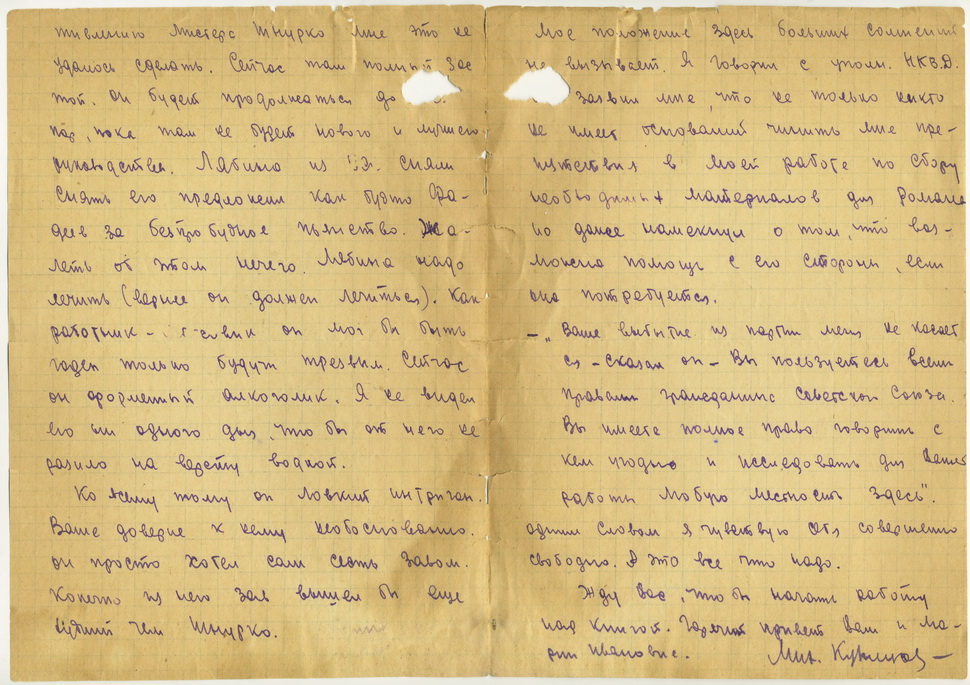 тивлению Мистера Шнурко мне это не
удалось сделать. Сейчас там полный зас
той. Он будет продолжаться до
пор, пока там не будет нового и лучшего
руководства. Лябина из сняли
Снять его предложил как будто Фа-
деев за беспробудное пьянство. Жа-
леть об этом нечего. Лябина надо
лечить (вернее он должен лечиться). Как
работник - он мог бы быть
годен только будучи трезвым. Сейчас
он форменный алкоголик. Я не видел
его ни одного дня, что бы от него не
разило на версту водкой.
Ко всему тому он ловкий интриган.
Ваше доверие к нему необосновано.
Он просто хотел сам стать Завом.
Конечно из него зав вышел бы еще
худший чем Шнурко.
Мое положение здесь больших сомнений
не вызывает. Я говорил с уполн. Н.К.В.Д.
заявил мне, что не только никто
не имеет оснований чинить мне пре-
пятствия в моей работе по сбору
необходимых материалов для романа
но даже намекнул о том, что воз-
можна помощь с его стороны, если
она потребуется.
- „Ваше выбытие из партии меня не касает
ся - сказал он - Вы пользуетесь всеми
правами гражданина Советского Союза.
Вы имеете полное право говорить с
кем угодно и исследовать для Вашей
работы любую местность здесь".
Одним словом я чувствую себя совершенно
свободно. А это все что надо.
Жду Вас, что бы начать работу
над книгой. Горячий привет Вам и Ма-
рии Ивановне. Мих.